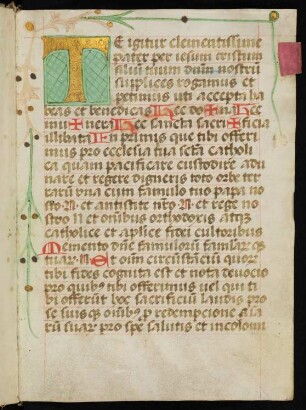 TE igitur clementissime
pater per iesum cristum
filiū tuum dnm nostrū
supplices rogamus et
petimus uti accepti ha
beas et benedicas Hec do✠na Hec
mu✠nera Hec sancta sacri✠ficia
illibata In primis que tibi offeri
mus pro ecclesia tua scta Catholi
ca quam pacificare custodire adu
nare et regere digneris toto orbe ter
rarū vna cum famulo tuo papa no
stro N et antistite nro N et rege no
stro N et omībus orthodoxis atqȝ
catholice et aplice fidei cultoribus
Memento dne famulorū famularūqȝ
tuarū N Et oīm circūstāciū quorū
tibi fides cognita est et nota deuocio
pro quibȝ tibi offerimus uel qui ti
bi offerūt hoc sacrificiū laudis pro
se suisqȝ oībȝ p redempcione aīa
rū suarū pro spe salutis et incolumi